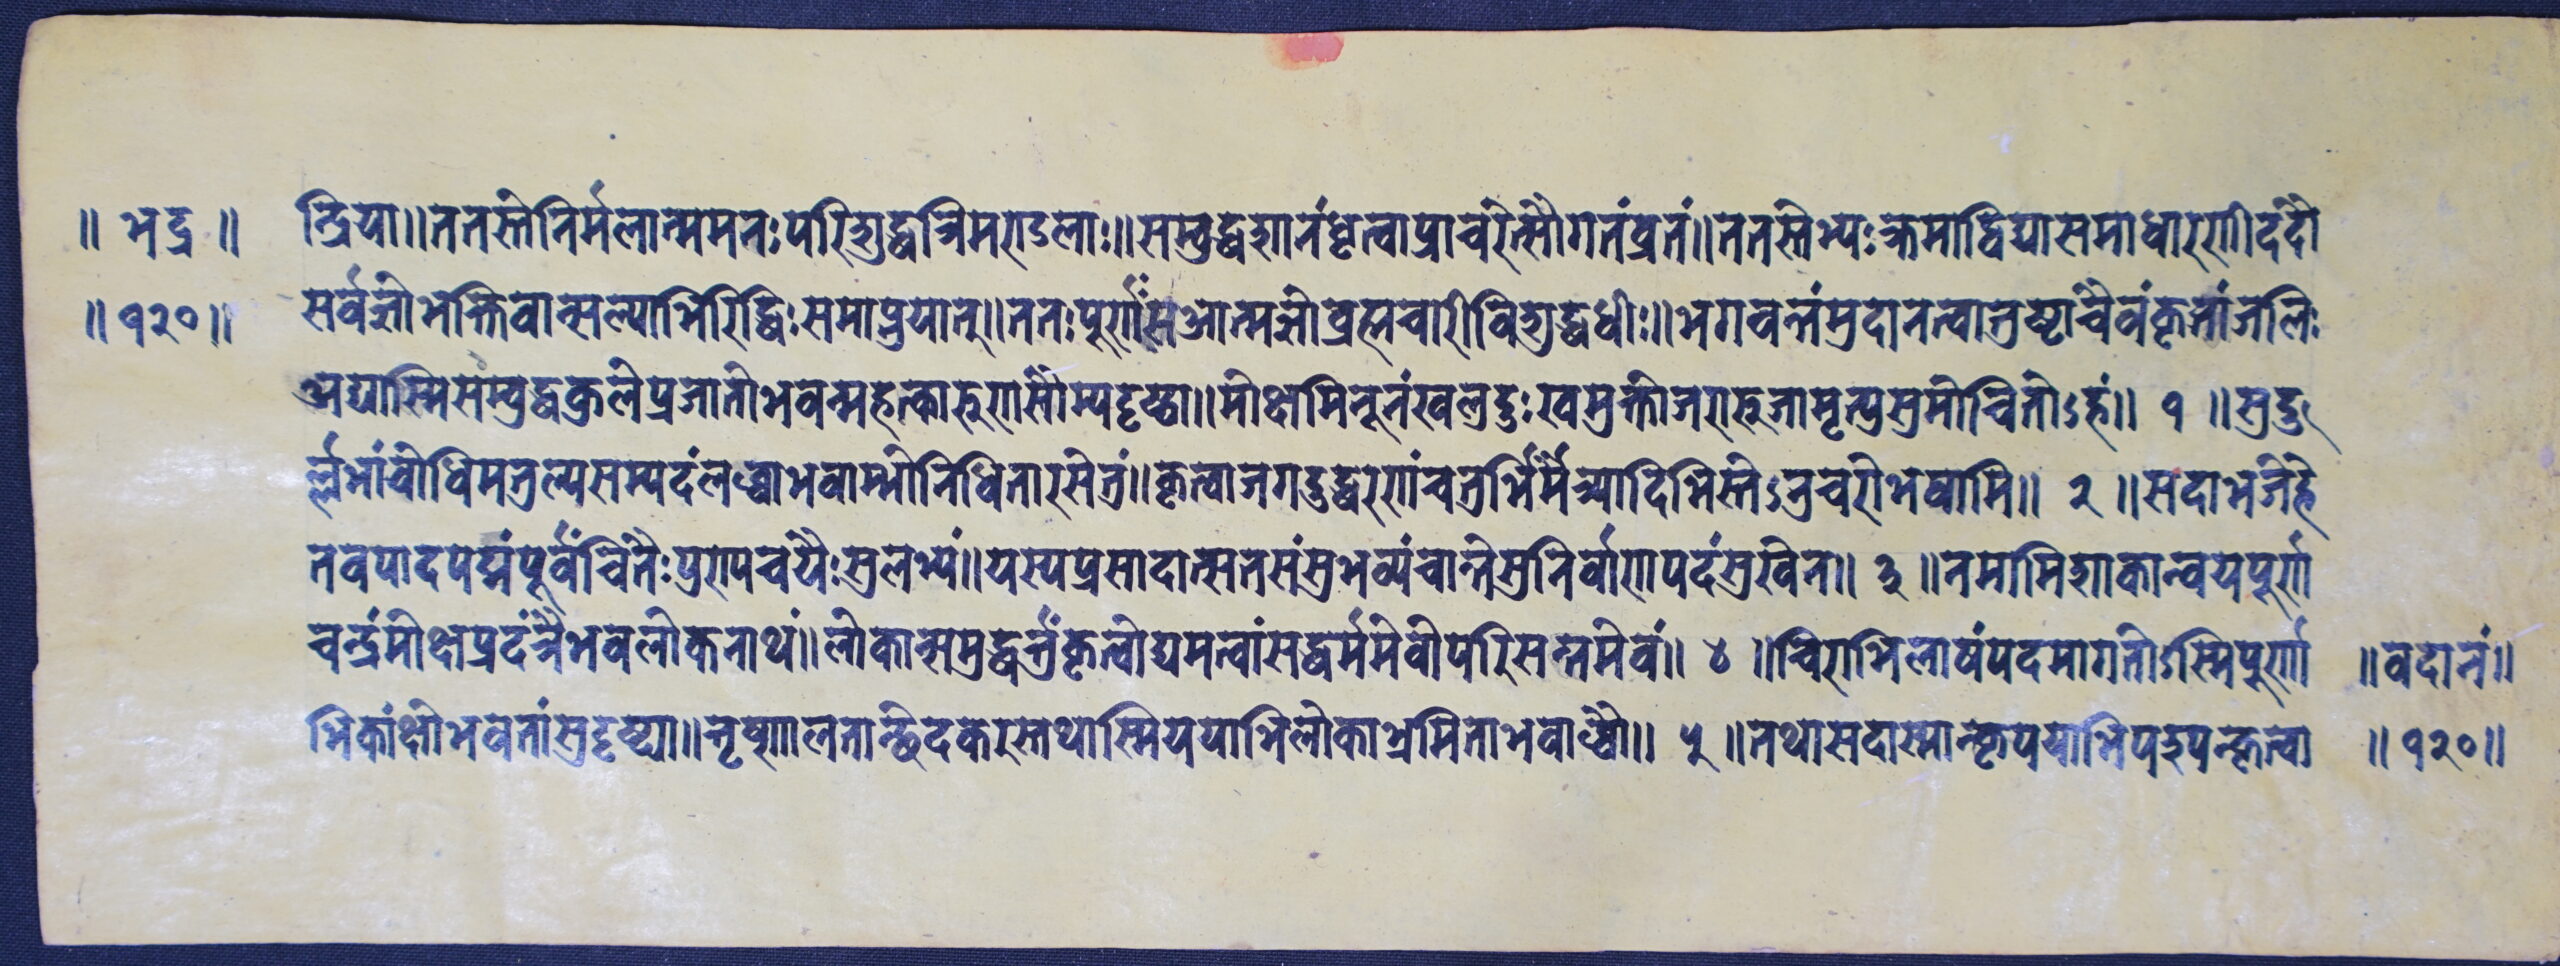 ॥ भद्र ॥ न्द्रिया॥ततस्तेनिर्मलात्ममनःपरिशुद्धत्रिमण्डलाः॥सम्बुद्धज्ञानंधृत्वाप्राचरेत्सौगतंव्रतं॥ततस्तेभ्यःक्रमाद्विद्यासमाधारणीददौ
॥१२०॥ सर्वज्ञोभक्तिवात्सल्याभिरिद्धिःसमाप्नुयात्॥ततःपूर्णःसआत्मज्ञोब्रह्मचारीविशुद्धधीः॥भगवन्तंमुदानत्वातुष्टाचैवंकृतांजलिः
अद्यास्मिसंम्बुद्धकुलेप्रजातोभवन्महत्कारुणासौम्यदृष्ट्या॥मोक्षमिनूनंखलुदुःखमुक्तोजरारुजामृत्युसुमोचितोऽहं॥ १ ॥सुदु
र्ल्लभांबोधिमतुल्यसम्पदंलब्ध्वाभवाम्भोनिधितारसेतुं॥कृत्वाजगदुद्धरणंचतुर्भिर्मैत्र्यादिभिस्तेऽनुचरोभवामि॥ २ ॥सदाभजेहे
तवपादपद्मंपूर्वंचितैःपुण्यचयैःसुलभ्यं॥यस्यप्रसादात्सतसंसुभव्यंचान्तेसुनिर्वाणपदंसुखेन॥ ३ ॥नमामिशाकान्वयपूर्ण
चन्द्रंमोक्षप्रदंत्रैभवलोकनाथं॥लोकान्समुद्धर्त्तुंकृत्वोद्यमत्वांसद्धर्ममेवोपरिसत्तमेवं॥ ४ ॥चिराभिलाषंपदमागतोऽस्मिपूर्णा ॥वदानं॥
भिकांक्षोभवतांसुदृष्ट्या॥तृष्णालतान्छेदकरुस्तथास्मिययाभिलोकाभ्रमिताभवाब्धौ॥ ५ ॥तथासदास्मान्कृपयाभिपश्यन्कृत्वा ॥१२०॥